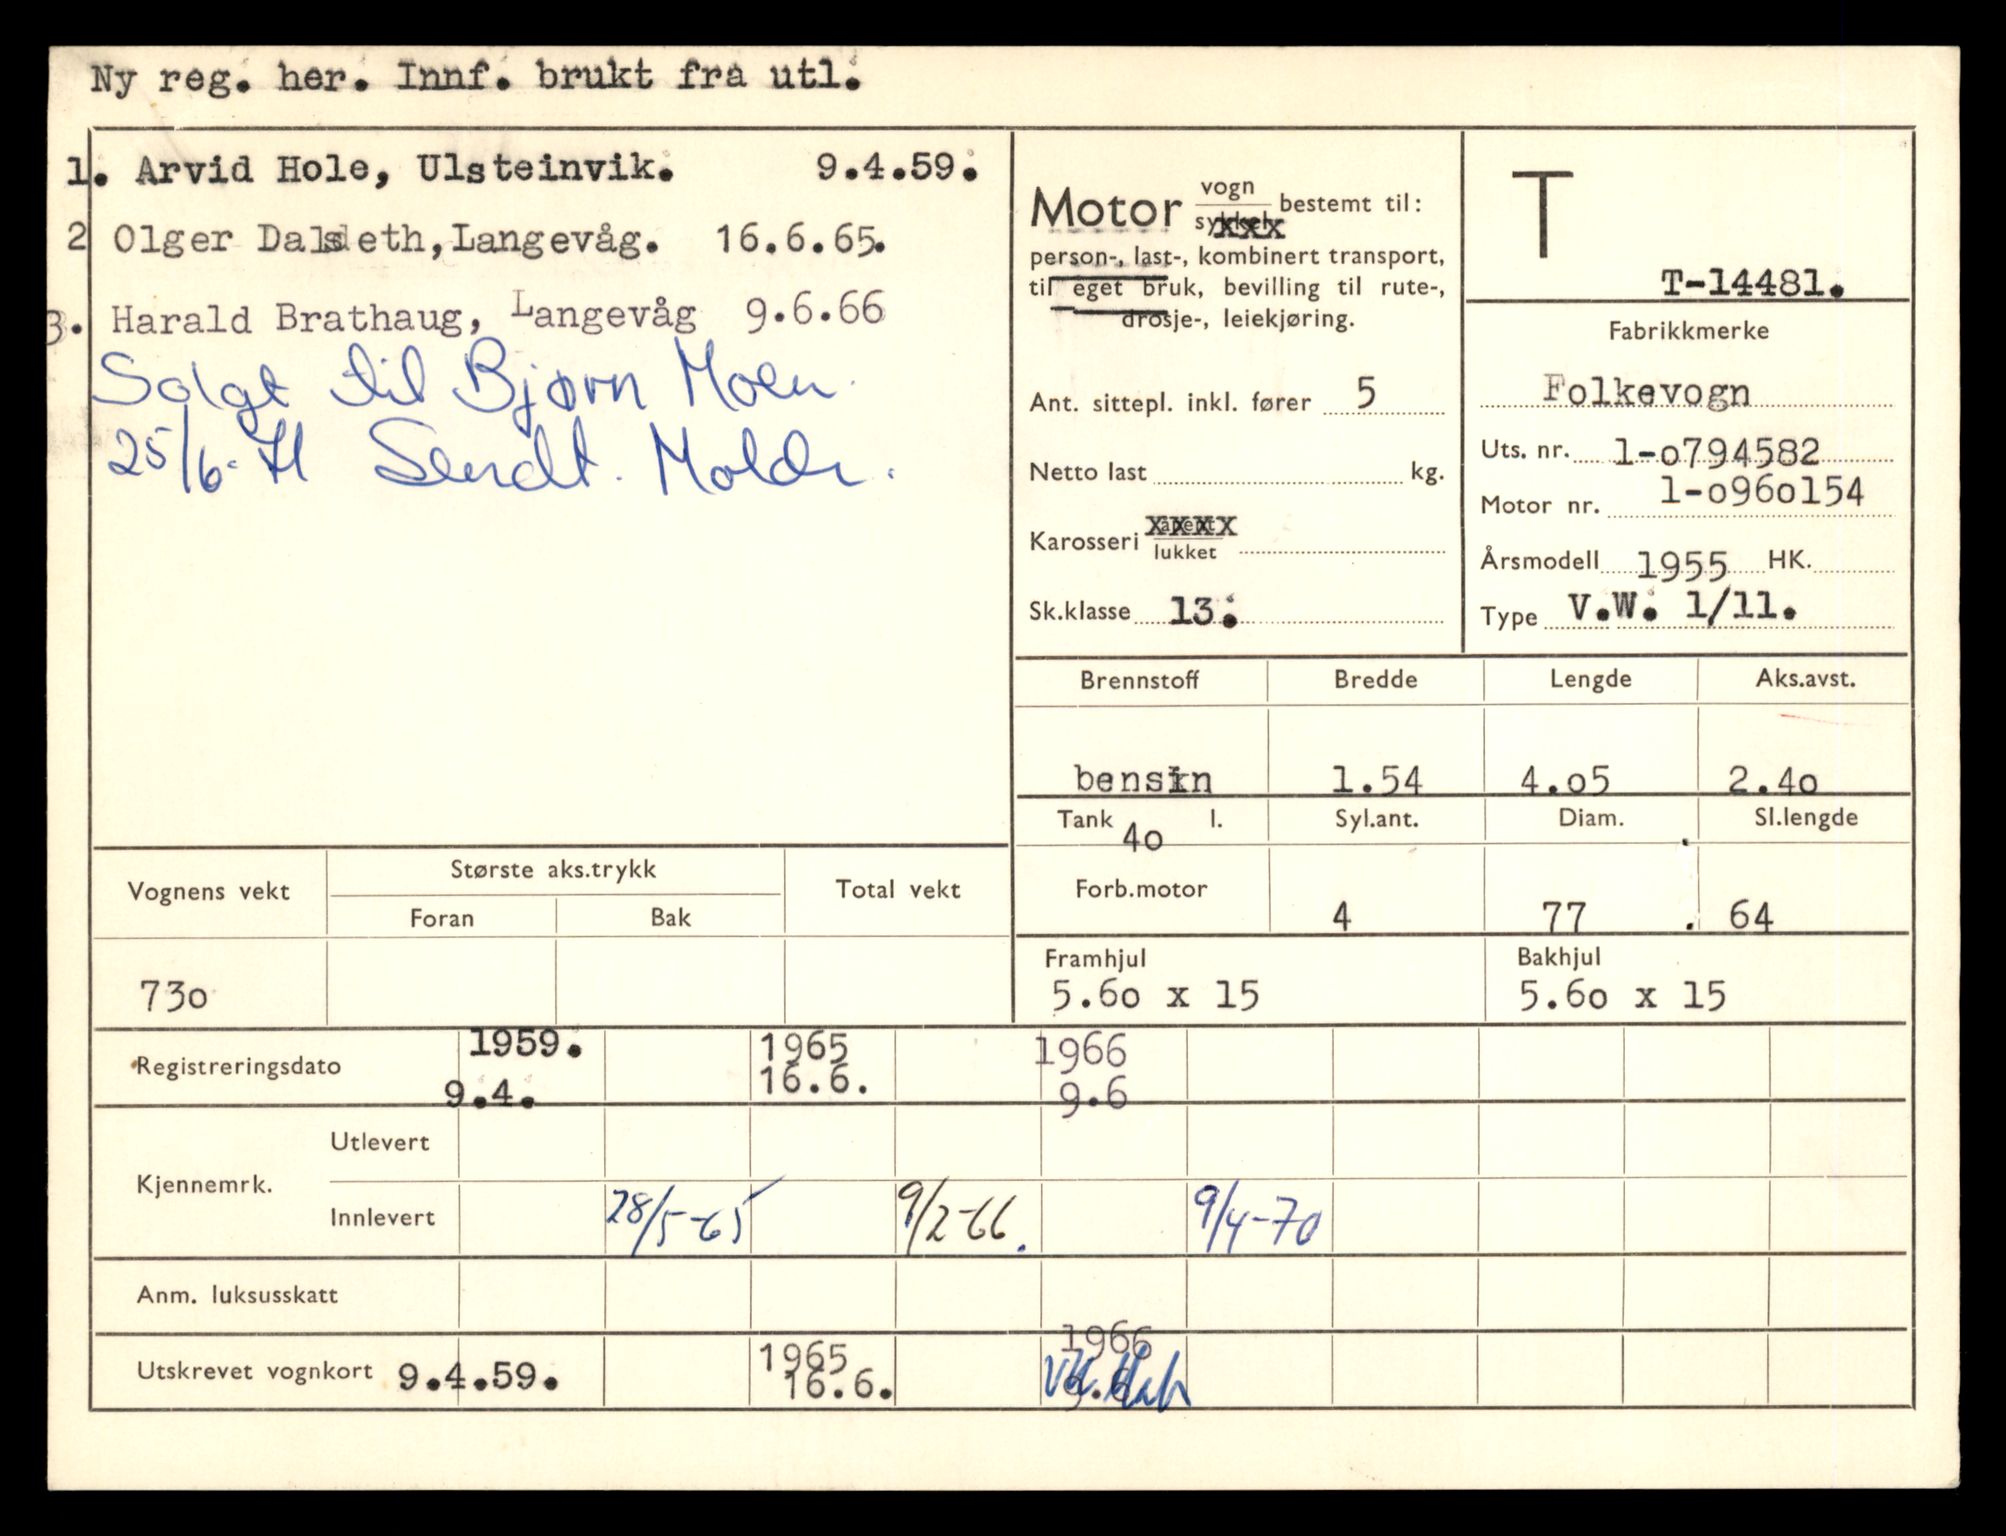 Ny reg. her. Innf. brukt fra utl.
1. Arvid Hole, Ulsteinvik. 9.4.59.
2 Olger Dalsleth, Langevåg. 16.6.65.
3. Harald Brathaug, Langevåg 9.6.66
Solgt til Bjørn Moen.
25/6- Sendt. Molde.
Motor vogn bestemt til:
person-, last-, kombinert transport,
til eget bruk, bevilling til rute-,
drosje-, leiekjøring.
Ant. sittepl. inkl. fører 5
Netto last kg.
Karosseri åpent
lukket
Sk.klasse 13.
T
T-14481.
Fabrikkmerke
Folkevogn
Uts. nr. 1-o794582
Motor nr. 1-o96o154
Årsmodell 1955 HK.
Type V.W. 1/11.
Brennstoff Bredde Lengde Aks.avst.
bensin 1.54 4.o5 2.4o
Tank 4o l. Syl.ant. Diam. Sl.lengde
Forb.motor 4 77 . 64
Framhjul Bakhjul
5.6o x 15 5.6o x 15
Vognens vekt Største aks.trykk Total vekt
Foran Bak
73o
Registreringsdato 1959. 1965 1966
9.4. 16.6. 9.6
Kjennemrk. Utlevert
Innlevert 28/5-65 9/2-66. 9/4-70
Anm. luksusskatt
Utskrevet vognkort 9.4.59. 1965 1966
16.6. 9.6